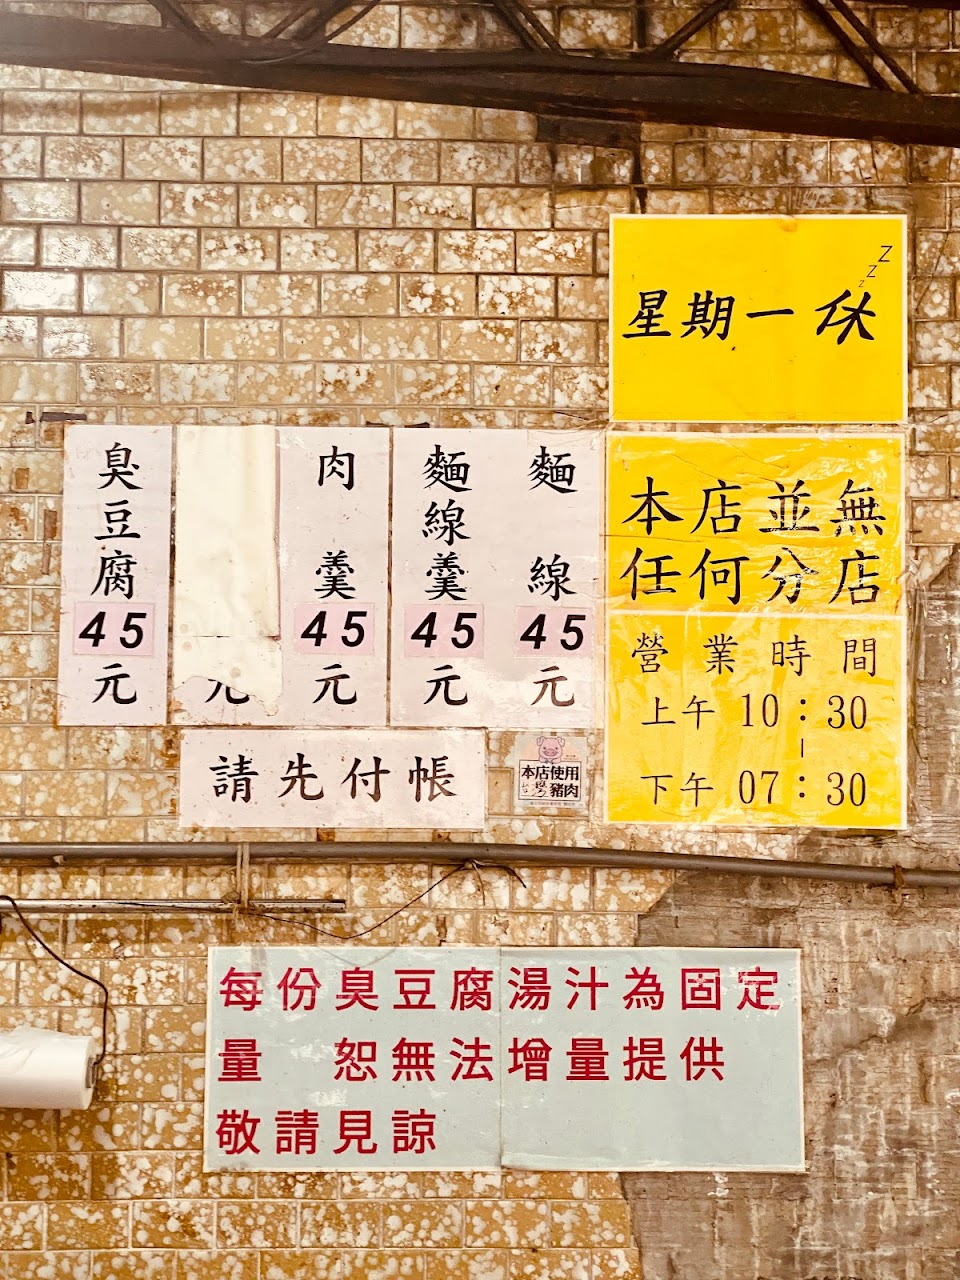 z z z
星期一休
本店並無
任何分店
營業時間
上午 10：30
|
下午 07：30
麵線
45
元
麵線羹
45
元
肉羹
45
元
元
臭豆腐
45
元
請先付帳
本店使用
台灣豬肉
每份臭豆腐湯汁為固定
量　恕無法增量提供
敬請見諒